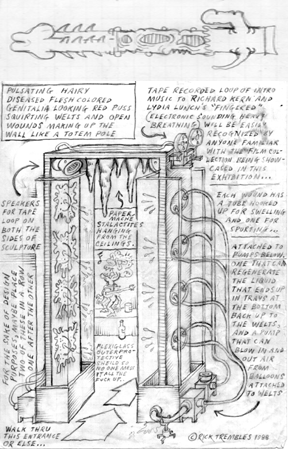 PULSATING HAIRY
DISEASED FLESH COLORED
GENITALIA LOOKING RED PUSS
SQUIRTING WELTS AND OPEN
WOUNDS MAKING UP THE
WALL LIKE A TOTEM POLE
TAPE RECORDED LOOP OF INTRO
MUSIC TO RICHARD KERN AND
LYDIA LUNCH'S "FINGERED"
(ELECTRONIC SOUNDING HEAVY
BREATHING) WILL BE EASILY
RECOGNIZED BY
ANYONE FAMILIAR
WITH THE FILM COL-
LECTION BEING SHOW-
CASED IN THIS
EXHIBITION...
SPEAKERS
FOR TAPE
LOOP ON
BOTH THE
SIDES OF
SCULPTURE
PAPER-
MACHE
STALACTITES
HANGING
FROM THE
CEILINGS.
EACH WOUND HAS
A TUBE HOOKED
UP FOR SWELLING
AND ONE FOR
SPURTING...
ATTACHED TO
PUMPS BELOW.
ONE THAT CAN
REGENERATE
THE LIQUID
THAT ENDS UP
IN TRAYS AT
THE BOTTOM
BACK UP TO
THE WELTS,
AND A PUMP
THAT CAN
BLOW IN AND
OUT AIR
FROM
BALLOONS
ATTACHED
TO WELTS
PLEXIGLASS
OUTER PRO-
TECTIVE
SHIELD SO
NO ONE MESSES
IT ALL THE
FUCK UP.
FOR THE SAKE OF DESIGN
TWO OF THESE IN A ROW
ONE AFTER THE OTHER
WALK THRU
THIS ENTRANCE
OR ELSE...
© RICK TREMBLES 1998